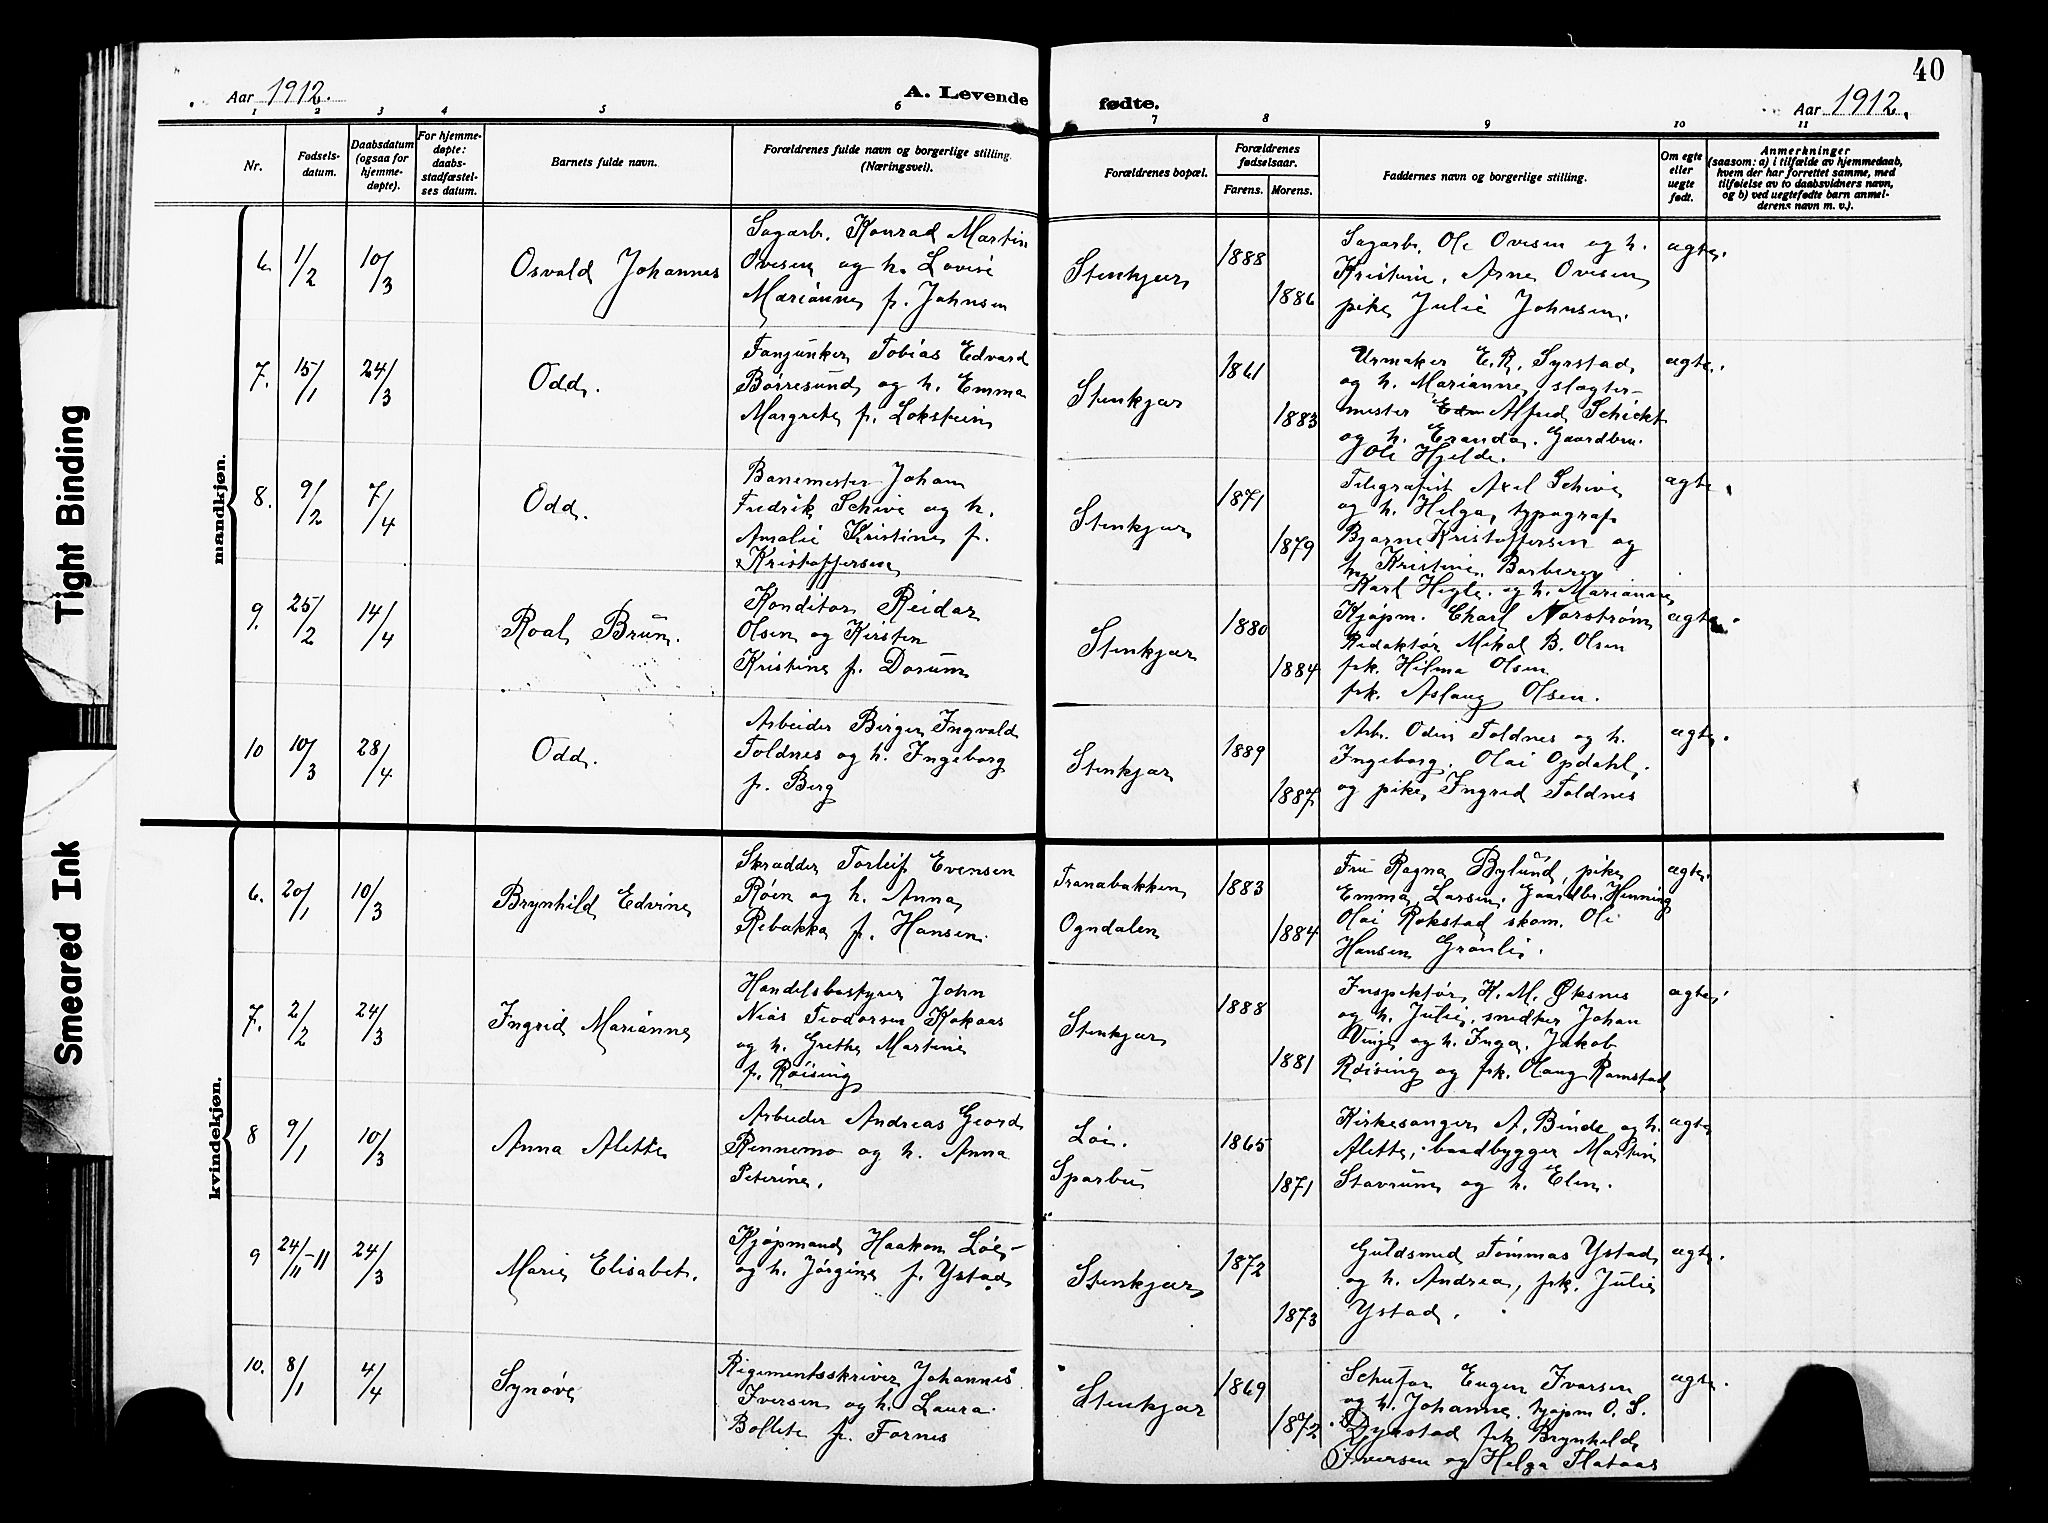 40
Aar 1912.
A. Levende
fødte.
Aar 1912.
1 2 3 4 5 6 7 8 9 10 11
Nr.
Fødsels-
datum.
Daabsdatum
(ogsaa for
hjemme-
døpte).
For hjemme-
døpte:
daabs-
stadfæstel-
ses datum.
Barnets fulde navn.
Forældrenes fulde navn og borgerlige stilling.
(Næringsvei).
Forældrenes bopæl.
Forældrenes
fødselsaar.
Farens. Morens.
Faddernes navn og borgerlige stilling.
Om egte
eller
uegte
født.
Anmerkninger
(saasom: a) i tilfælde av hjemmedaab,
hvem der har forrettet samme, med
tilføielse av to daabsvidners navn,
og b) ved uegtefødte barn anmel-
derens navn m. v.).
Tight Binding
Smeared Ink
mandkjøn.
6. 1/2 10/3
Osvald Johannes
Sagarb. Konrad Martin
Ovesen og h. Lovise
Marianne f. Johnsen
Stenkjær
1888
1886
Sagarb. Ole Ovesen og h.
Kristine. Arne Ovesen
pike Julie Johnsen.
ægte.
7. 15/1 24/3
Odd.
Fanjunker Tobias Edvard
Børresund og h. Emma
Margrete f. Lokstein
Stenkjær
1861
1883
Urmaker E. R. Syrstad
og h. Marianne, slagter-
mester Alfred Schickt
og h. Eranda. Gaardbru.
Ole Hjelde.
ægte.
8. 9/2 7/4
Odd.
Banemester Johan
Fredrik Schive og h.
Amalie Kristine f.
Kristoffersen
Stenkjær
1871
1879
Telegrafist Axel Schive
og h. Helga, typograf
Bjarne Kristoffersen og
h. Kristine. Barberer
Karl Higle. og h. Marianne
ægte.
9. 25/2 14/4
Roal Brun.
Konditor Reidar
Olsen og Kirsten
Kristine f. Dorum
Stenkjær
1880
1884
Kjøpm. Charl Norstrøm
Redaktør Mikal B. Olsen
frk. Hilma Olsen
frk. Aslaug Olsen.
ægte.
10 10/3 28/4
Odd.
Arbeider Birger Ingvald
Toldnes og h. Ingeborg
f. Berg
Stenkjær
1889
1887
Arb. Odin Toldnes og h.
Ingeborg. Olai Opdahl.
og pike Ingrid Toldnes
ægte.
kvindekjøn.
6. 20/1 10/3
Brynhild Edvine
Skrædder Torleif Evensen
Røen og h. Anna
Rebakka f. Hansen.
Tranabakken
Ogndalen
1883
1884
Fru Ragna Bylund, pike
Emma Larsen. Gaardbr. Henning
Olai Rokstad skom. Ole
Hansen Grønlie.
ægte.
7. 2/2 24/3
Ingrid Marianne
Handelsbestyrer John
Nias Teodorsen Kokaas
og h. Grethe Martine
f. Røising
Stenkjær
1888
1881
Inspektør K. M. Øksnes
og h. Julie, snedker Johan
Vinje og h. Inga. Jakob
Røising og frk. Olaug Ramstad
ægte.
8 9/1 10/3
Anna Alette
Arbeider Andreas Geord
Rennemo og h. Anna
Peterine.
Løe.
Sparbu
1865
1871
Kirkesanger A. Binde og h.
Alette, baadbygger Martin
Stavrum og h. Elen.
ægte
9 24/11-11 24/3
Marie Elisabet.
Kjøpmand Haakon Løe
og h. Jørgine f. Ystad
Stenkjær
1872
1873
Guldsmed Tommas Ystad
og h. Andrea, frk. Julie
Ystad.
ægte.
10. 8/1 4/4
Synøve
Regimentsskriver Johannes
Iversen og h. Laura
Bollete f. Fornes
Stenkjær
1869
1872
Eugen Iversen
og h. Johanne. kjøpm O. S.
Dyrstad frk Brynhild
Iversen og Helga Flataas
ægte.